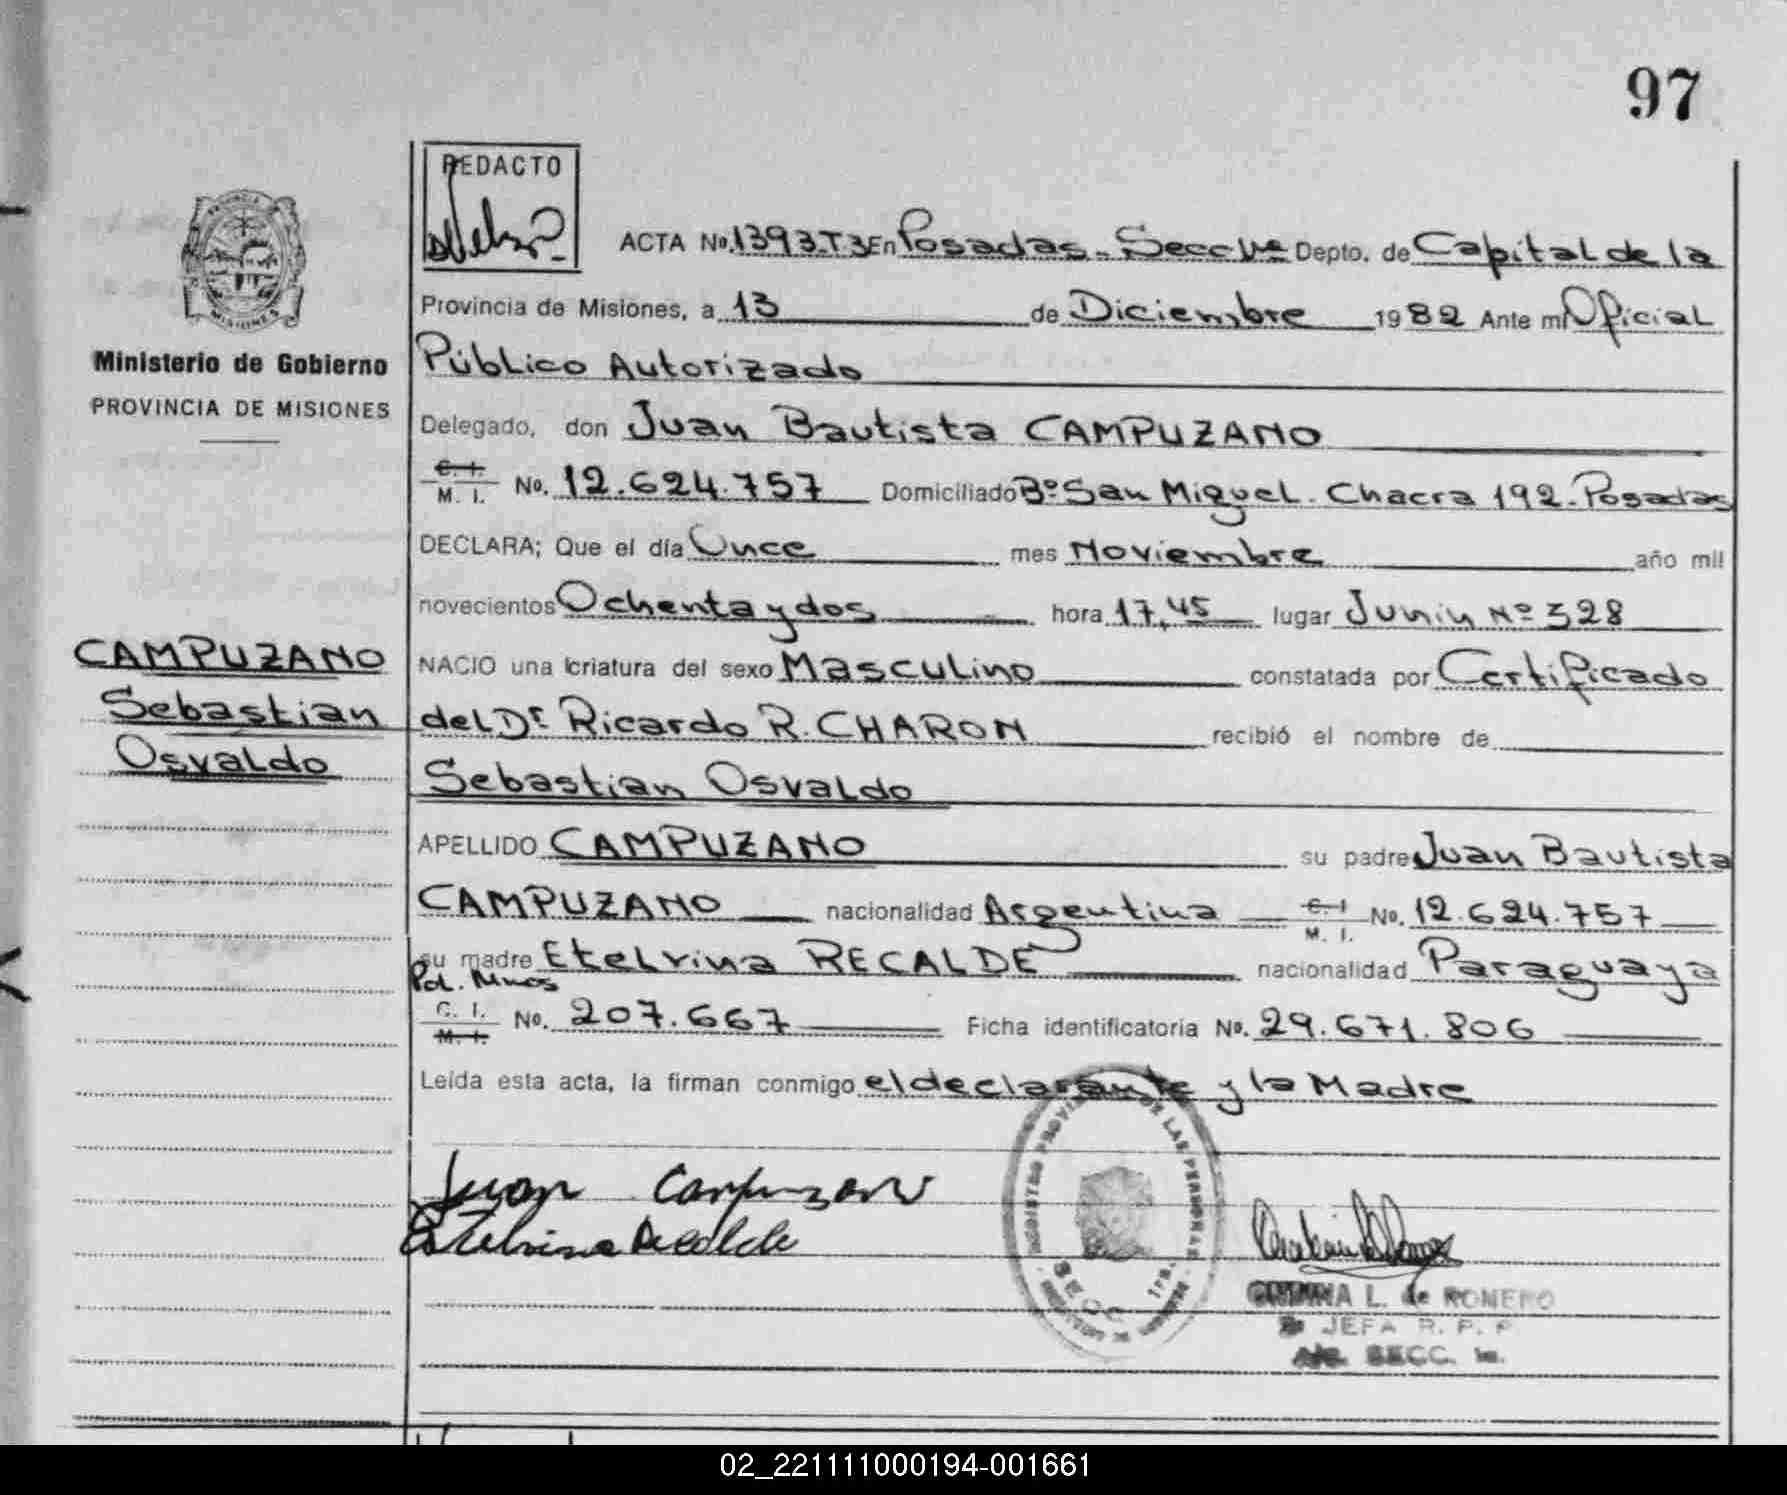 97
REDACTO
ACTA No. 1393.T3 En Posadas. Secc 1ra Depto. de Capital de la
Provincia de Misiones, a 13 de Diciembre 1982 Ante mi Oficial
Ministerio de Gobierno
Público Autorizado
PROVINCIA DE MISIONES
Delegado, don Juan Bautista CAMPUZANO
C. I.
M. I. No. 12.624.757 Domiciliado Bº San Miguel. Chacra 192. Posadas
DECLARA; Que el día Once mes Noviembre año mil
novecientos Ochenta y dos hora 17,45 lugar Junin Nº 328
CAMPUZANO
Sebastian
Osvaldo
NACIO una criatura del sexo Masculino constatada por Certificado
del Dr Ricardo R. CHARON recibió el nombre de
Sebastian Osvaldo
APELLIDO CAMPUZANO su padre Juan Bautista
CAMPUZANO nacionalidad Argentina C. I No. 12.624.757
M. I.
su madre Etelvina RECALDE nacionalidad Paraguaya
Pol. Mnes
C. I.
M. I. No. 207.667 Ficha identificatoria No. 29.671.806
Leída esta acta, la firman conmigo el declarante y la Madre
Juan Campuzano
Etelvina Recalde
L. de ROMERO
JEFA R. P. P.
SECC. 1a.
02_221111000194-001661